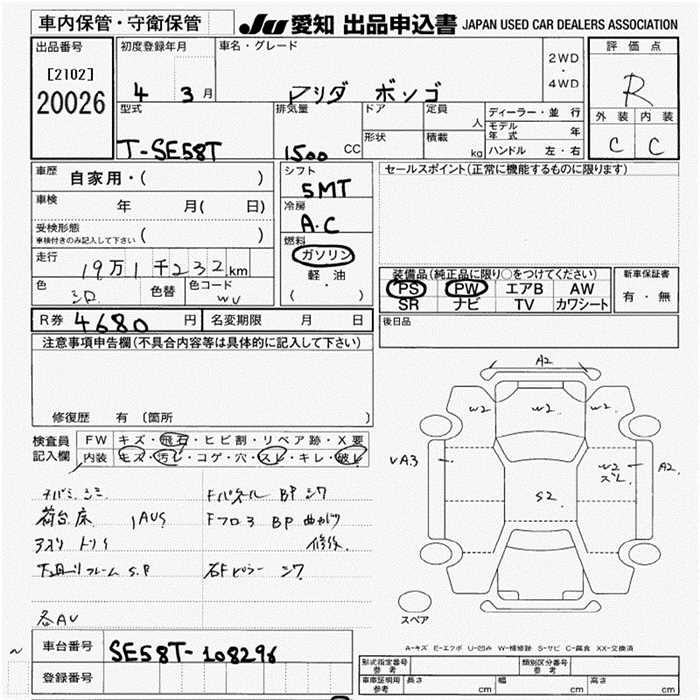 車内保管・守衛保管
JU 愛知 出品申込書 JAPAN USED CAR DEALERS ASSOCIATION
出品番号
[2102]
20026
初度登録年月
4 3月
車名・グレード
マツダ ボンゴ
2WD
・
4WD
評価点
R
外装 内装
C C
型式
T-SE58T
排気量
1500 CC
ドア
形状
定員
人
積載
kg
ディーラー・並 行
モデル年式 年
ハンドル 左・右
車歴
自家用・( )
車検
年 月( 日)
受検形態
車検付きのみ記入して下さい ( )
走行
19万1千232km
色
シロ
色替
色コード
WU
シフト
5MT
冷房
A.C
燃料
ガソリン
軽 油
( ・ )
セールスポイント(正常に機能するものに限ります)
装備品(純正品に限り○をつけてください)
PS PW エアB AW
SR ナビ TV カワシート
新車保証書
有・無
後日品
R券 4680 円
名変期限 月 日
注意事項申告欄(不具合内容等は具体的に記入して下さい)
修復歴 有 (箇所 )
検査員記入欄
FW キズ・飛石・ヒビ割・リペア跡・X要
内装 キズ・汚レ・コゲ・穴・スレ・キレ・破レ
荷台床 1AUS
FパネルBP シワ
Fフロ3 BP 曲がり
修復
下回りフレーム S.P
右Fピラー シワ
各AU
A2
W2 W2 W2
VA3
S2
W2
スレ
A2
スペア
A-キズ E-エクボ U-凹み W-補修跡 S-サビ C-腐食 XX-交換済
車台番号 SE58T-108296
登録番号
型式指定番号
参考
類別区分番号
参考
車庫証明用
参考
長さ cm 幅 cm 高さ cm